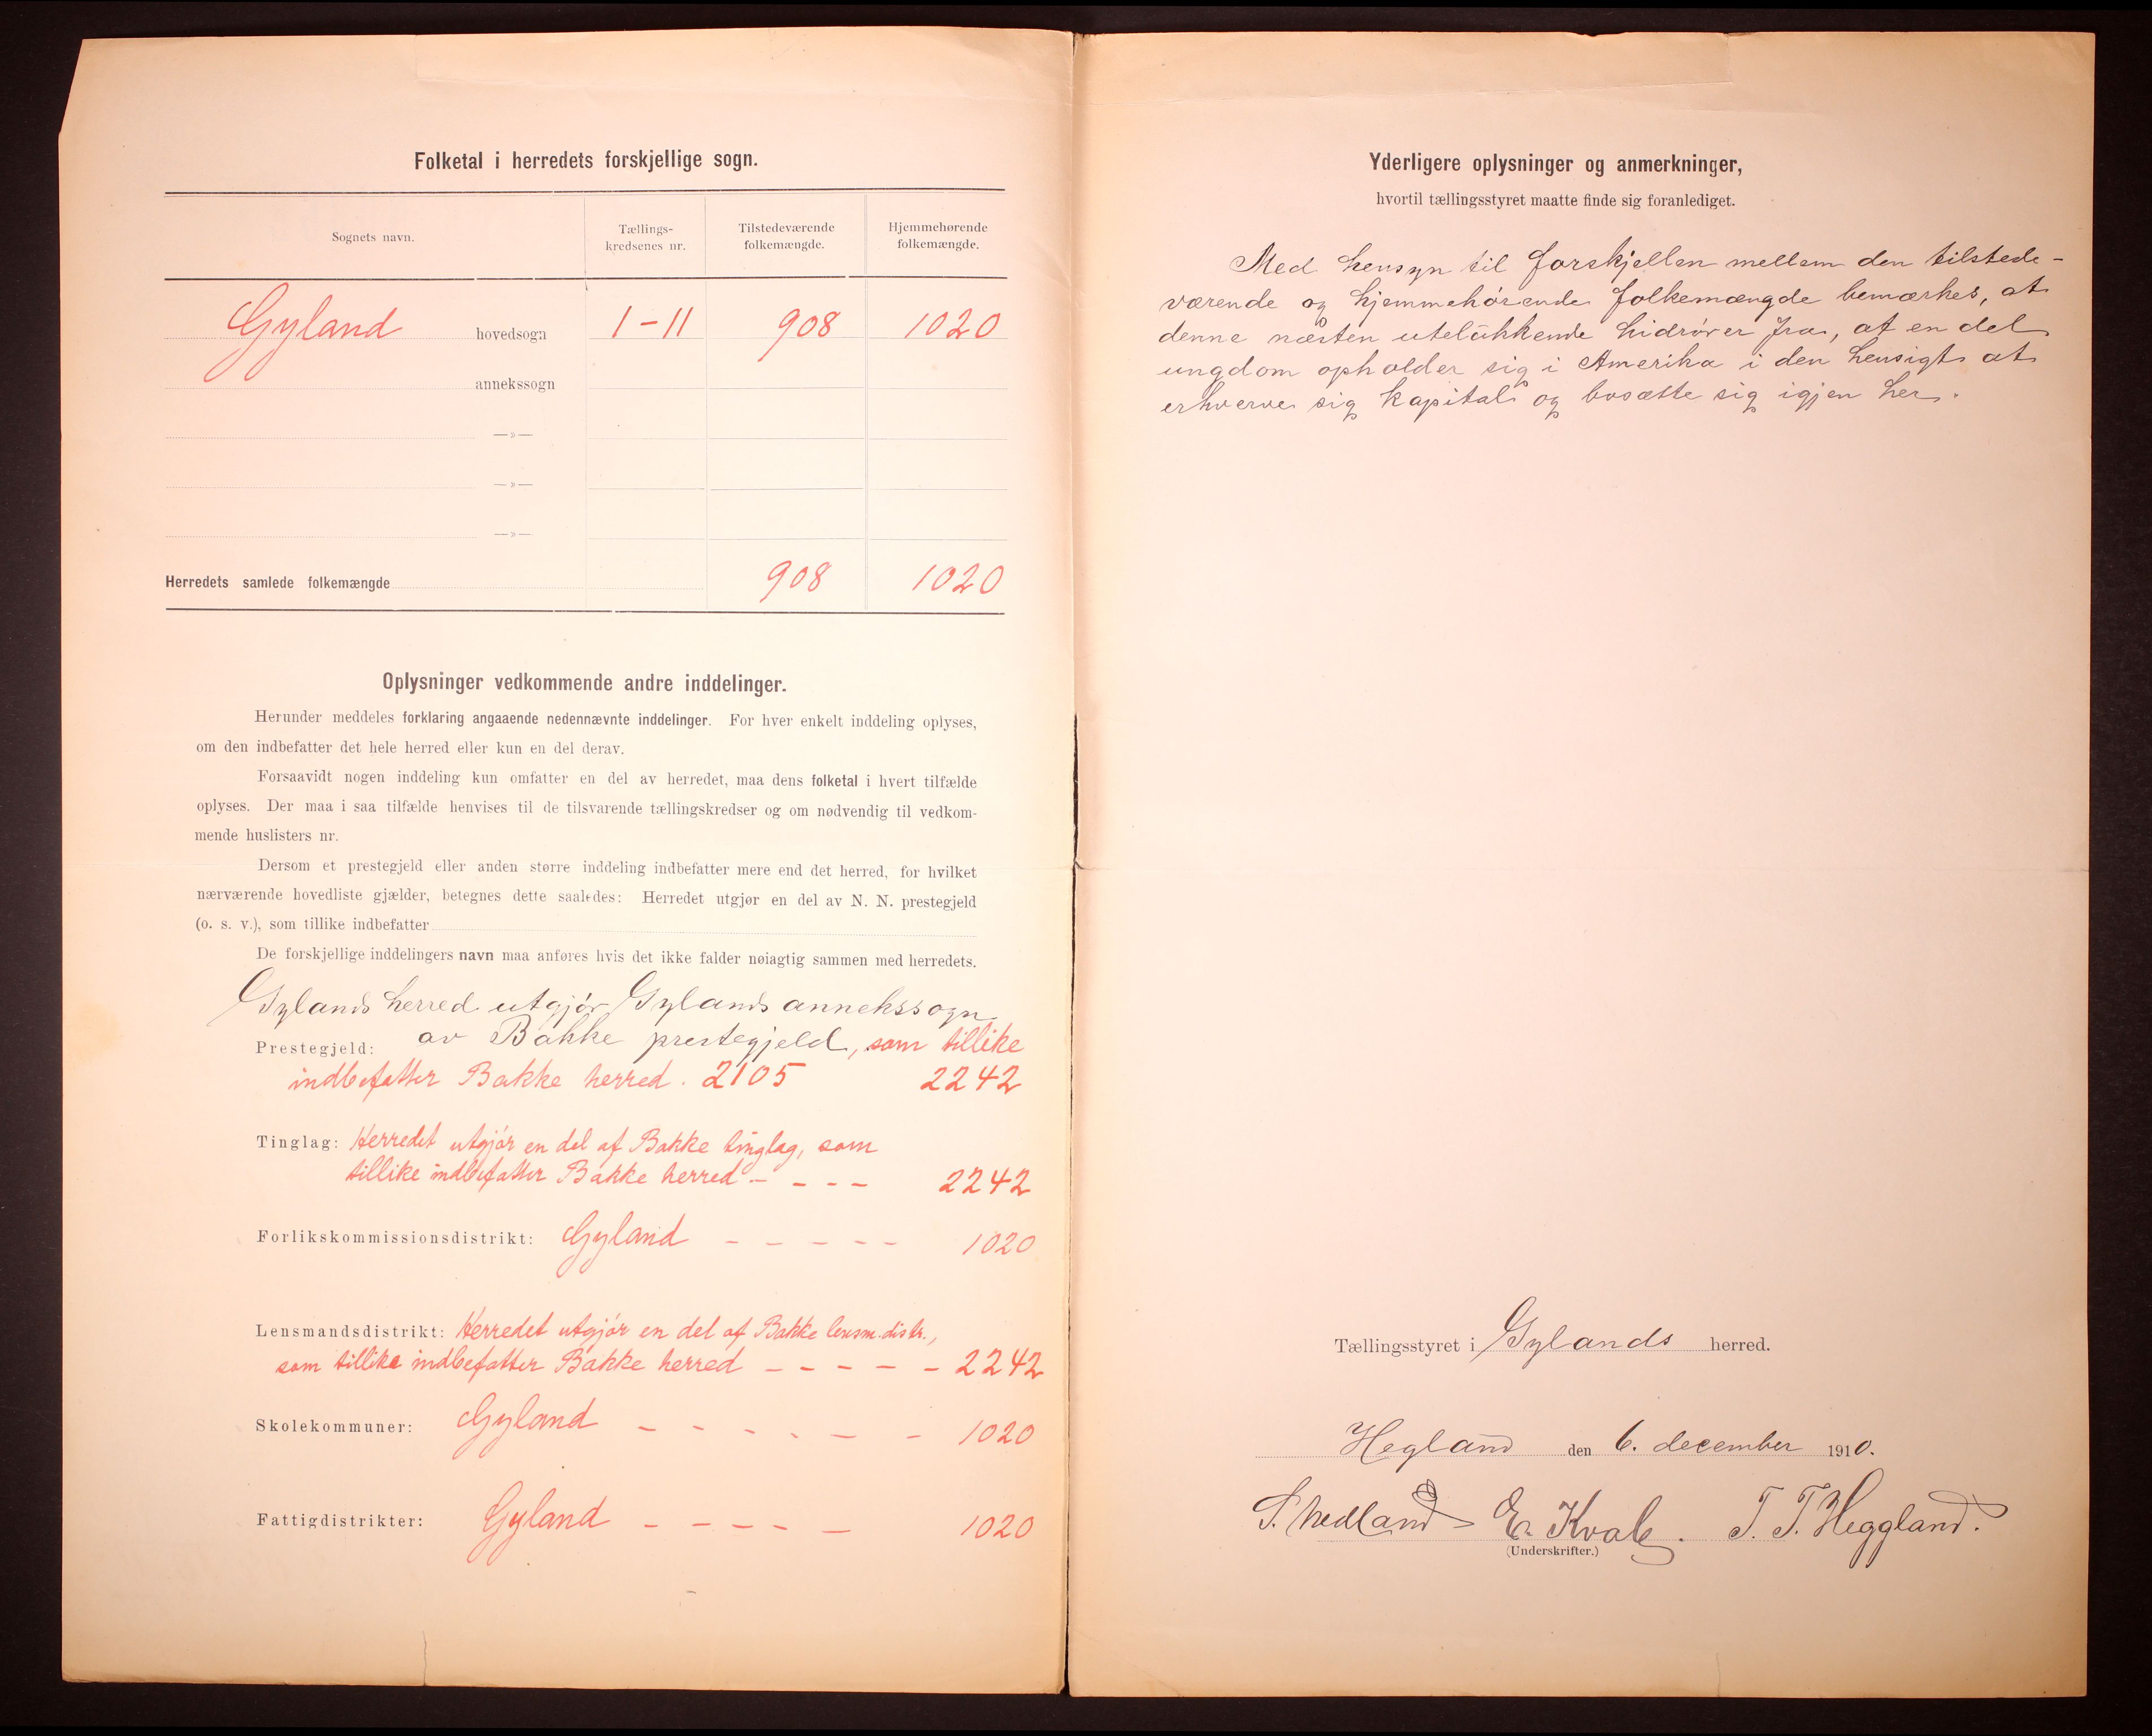 Folketal i herredets forskjellige sogn.
Sognets navn.
Tællings-
kredsenes nr.
Tilstedeværende
folkemængde.
Hjemmehørende
folkemængde.
Gyland hovedsogn 1-11 908 1020
annekssogn
—»—
—»—
—»—
Herredets samlede folkemængde 908 1020
Oplysninger vedkommende andre inddelinger.
Herunder meddeles forklaring angaaende nedennævnte inddelinger. For hver enkelt inddeling oplyses,
om den indbefatter det hele herred eller kun en del derav.
Forsaavidt nogen inddeling kun omfatter en del av herredet, maa dens folketal i hvert tilfælde
oplyses. Der maa i saa tilfælde henvises til de tilsvarende tællingskredser og om nødvendig til vedkom-
mende huslisters nr.
Dersom et prestegjeld eller anden større inddeling indbefatter mere end det herred, for hvilket
nærværende hovedliste gjælder, betegnes dette saaledes: Herredet utgjør en del av N. N. prestegjeld
(o. s. v.), som tillike indbefatter
De forskjellige inddelingers navn maa anføres hvis det ikke falder nøiagtig sammen med herredets.
Gylands herred utgjør Gylands annekssogn
Prestegjeld: av Bakke prestegjeld, som tillike
indbefatter Bakke herred. 2105 2242
Tinglag: Herredet utgjør en del af Bakke tinglag, som
tillike indbefatter Bakke herred - - - - 2242
Forlikskommissionsdistrikt: Gyland - - - - - 1020
Lensmandsdistrikt: Herredet utgjør en del af Bakke lensm.distr.,
som tillike indbefatter Bakke herred - - - - - 2242
Skolekommuner: Gyland - - - - - - 1020
Fattigdistrikter: Gyland - - - - - 1020
Yderligere oplysninger og anmerkninger,
hvortil tællingsstyret maatte finde sig foranlediget.
Med hensyn til forskjellen mellem den tilstede-
værende og hjemmehørende folkemængde bemærkes, at
denne næsten utelukkende hidrører fra, at en del
ungdom opholder sig i Amerika i den hensigt at
erhverve sig kapital og bosætte sig igjen her.
Tællingsstyret i Gylands herred.
Hegland den 6. december 1910.
S. Nedland E. Kvale. T. T. Heggland.
(Underskrifter.)